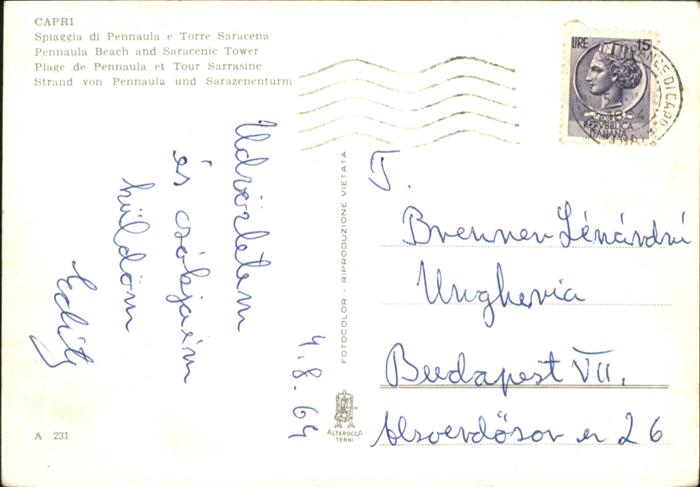 CAPRI
Spiaggia di Pennaula e Torre Saracena
Pennaula Beach and Saracenic Tower
Plage de Pennaula et Tour Sarrasine
Strand von Pennaula und Sarazenenturm
LIRE 15
REPVBBLICA
ITALIANA
Üdvözletem
és csókjaim
küldöm
Edit
4.8.64
FOTOCOLOR - RIPRODUZIONE VIETATA
ALTEROCCA
TERNI
T.
Brenner Lénárdné
Ungheria
Budapest VII.
Alsóerdősor u 26
A 231